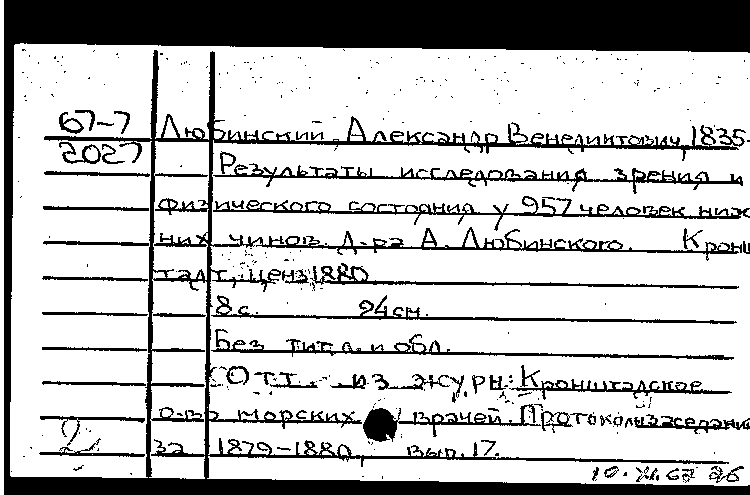 67-7
2027
Любинский, Александр Венедиктович, 1835-
Результаты исследования зрения и
физического состояния у 957 человек ниж
них чинов д-ра А. Любинского. Кронш
тадт, ценз 1880
8 с. 24 см.
Без тит. л. и обл.
Отт. из журн: Кронштадское
о-во морских врачей. Протоколы заседаний
за 1879-1880, вып. 17.
2